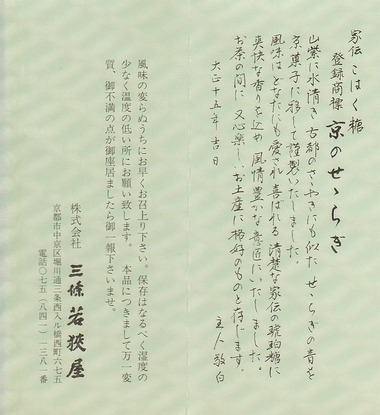 家伝 こはく糖
登録商標 京のせゝらぎ
山紫に水清き 古都のさゝやきにも似た せゝらぎの音を
京菓子に移して謹製いたしました。
風味はどなたにも愛され喜ばれる 清楚な家伝の琥珀糖に
爽快な香りを込め 風情豊かな意匠にいたしました。
お茶の間に 又心楽しいお土産に 格好のものと存じます。
大正十五年吉日
主人敬白
風味の変らぬうちにお早くお召上り下さい。保存はなるべく湿度の
少なく温度の低い所にお願い致します。 本品につきまして万一変
質、御不満の点が御座居ましたら御一報下さいませ。
株式会社 三條若狭屋
京都市中京区堀川通三条西入ル橋西町六七五
電話〇七五(八四一)一三八一番